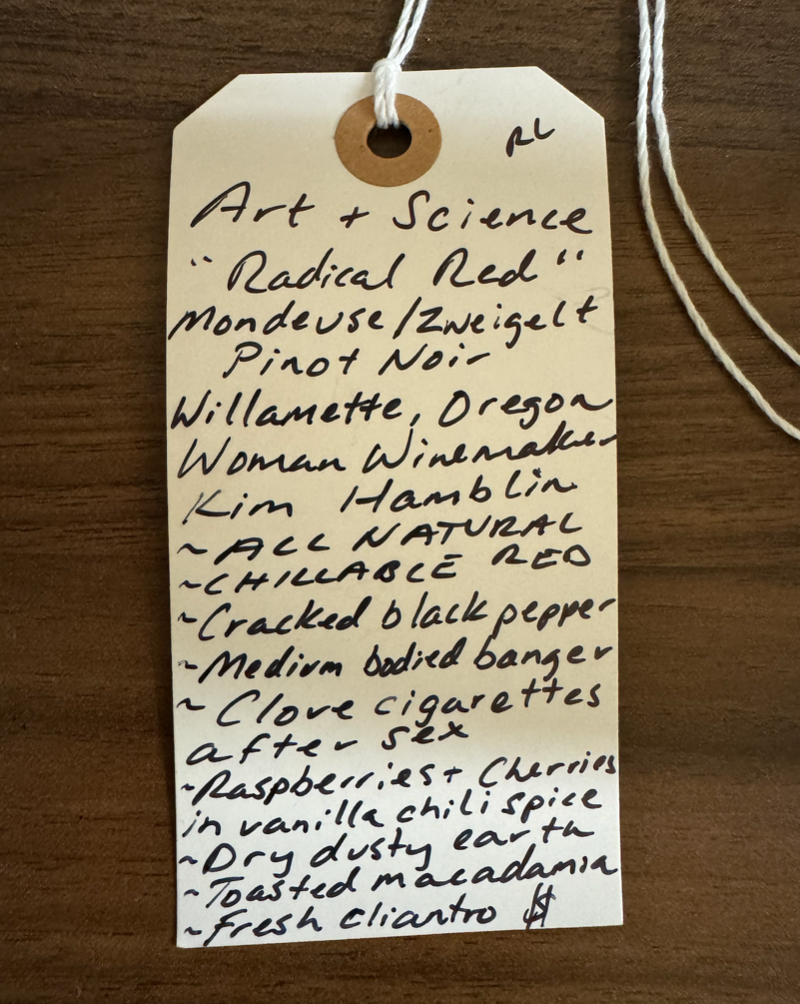 RL
Art + Science
"Radical Red"
Mondeuse/Zweigelt
Pinot Noir
Willamette, Oregon
Woman Winemaker
Kim Hamblin
~ALL NATURAL
~CHILLABLE RED
~Cracked black pepper
~Medium bodied banger
~Clove cigarettes
after sex
~Raspberries + Cherries
in vanilla chili spice
~Dry dusty earth
~Toasted macadamia
~Fresh cliantro $